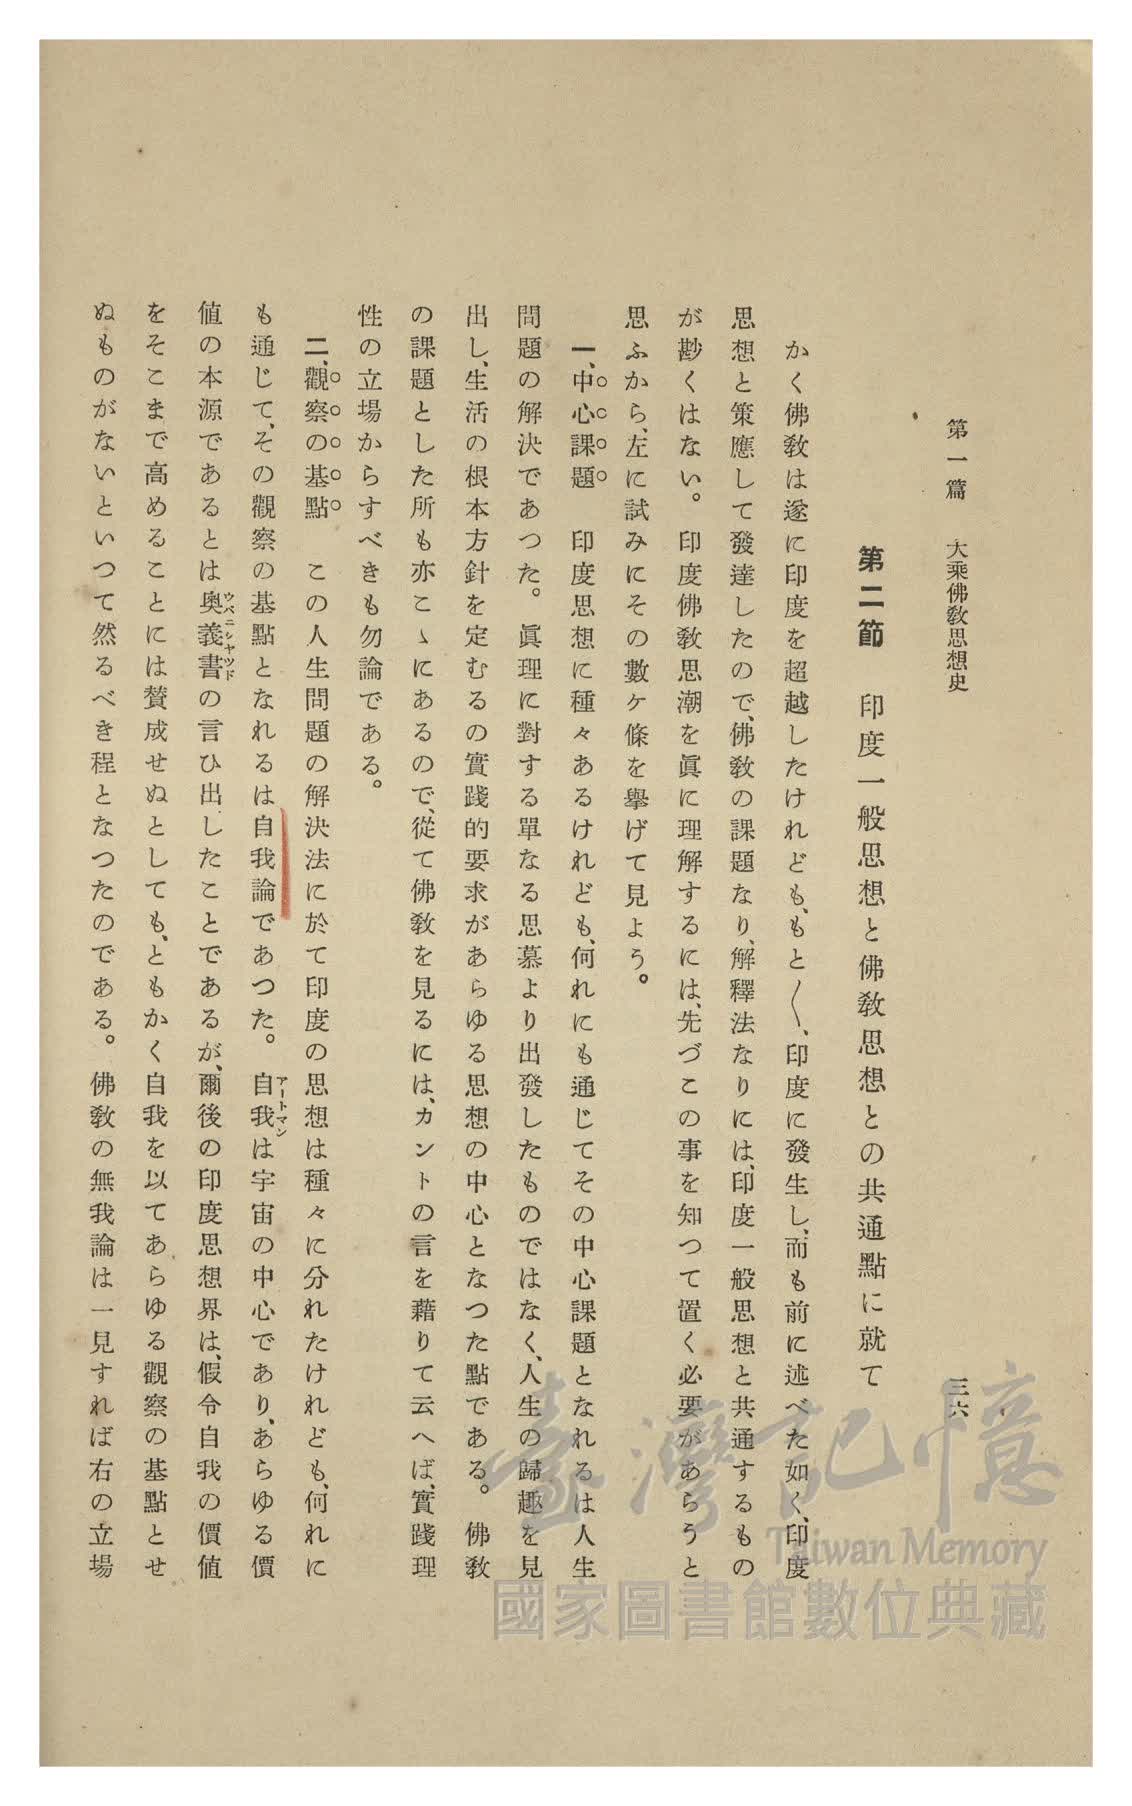 第一篇　大乘佛敎思想史
三六
第二節　印度一般思想と佛敎思想との共通點に就て
かく佛敎は遂に印度を超越したけれども、もと〱、印度に發生し、而も前に述べた如く、印度
思想と策應して發達したので、佛敎の課題なり、解釋法なりには、印度一般思想と共通するもの
が尠くはない。印度佛敎思潮を眞に理解するには、先づこの事を知つて置く必要があらうと
思ふから、左に試みにその數ケ條を擧げて見よう。
一、中心課題　印度思想に種々あるけれども、何れにも通じてその中心課題となれるは人生
問題の解決であつた。眞理に對する單なる思慕より出發したものではなく、人生の歸趣を見
出し、生活の根本方針を定むるの實踐的要求があらゆる思想の中心となつた點である。佛敎
の課題とした所も亦こゝにあるので、從て佛敎を見るには、カントの言を藉りて云へば、實踐理
性の立場からすべきも勿論である。
二、觀察の基點　この人生問題の解決法に於て印度の思想は種々に分れたけれども、何れに
も通じて、その觀察の基點となれるは自我論であつた。自我アートマンは宇宙の中心であり、あらゆる價
値の本源であるとは奧義書ウパニシヤツドの言ひ出したことであるが、爾後の印度思想界は、假令自我の價値
をそこまで高めることには賛成せぬとしても、ともかく自我を以てあらゆる觀察の基點とせ
ぬものがないといつて然るべき程となつたのである。佛敎の無我論は一見すれば右の立場
臺灣記憶
Taiwan Memory
國家圖書館數位典藏